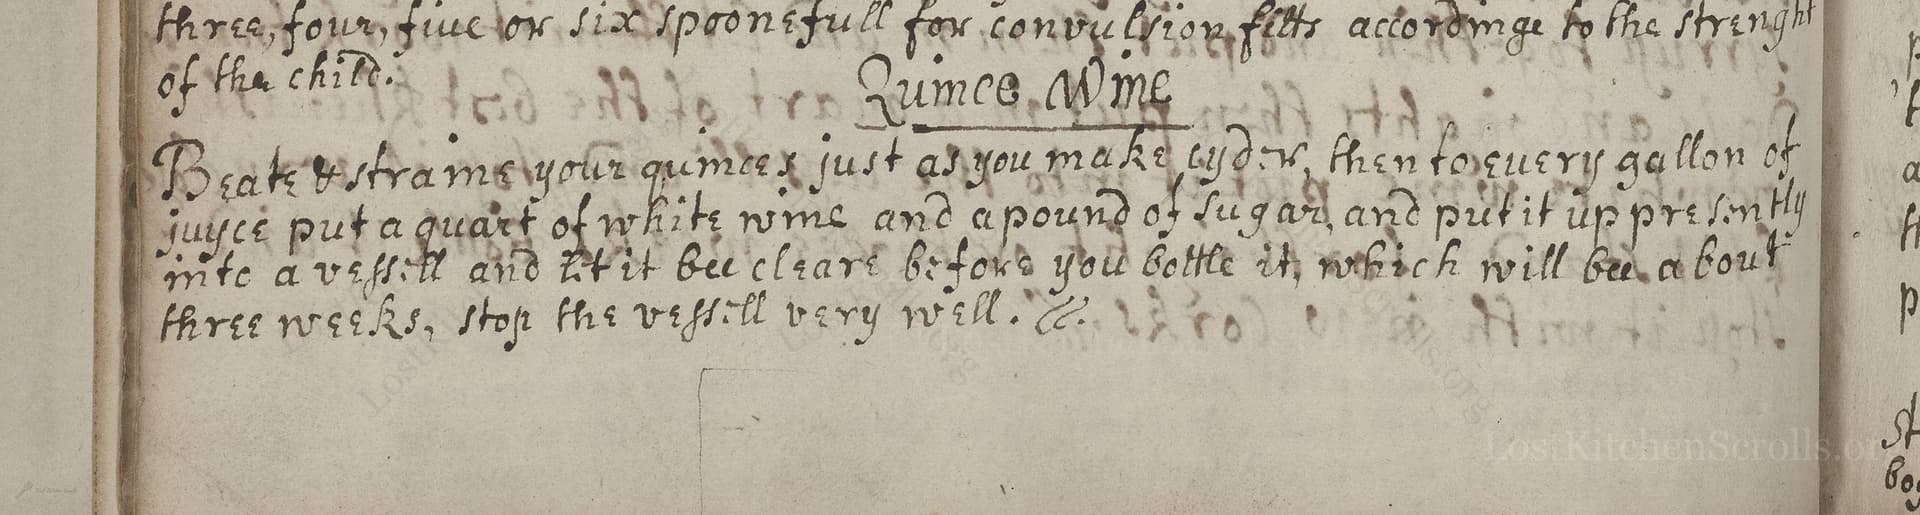 three, four, fiue or six spoonefull for convulsion fitts accordinge to the strenght
of the child.
Quince Wine
Beate & straine your quinces just as you make cyder, then to euery gallon of
juyce put a quart of white wine and a pound of sugar, and put it up presently
into a vessell and let it bee cleare before you bottle it, which will bee about
three weeks, stop the vessell very well.
LostKitchenScrolls.or